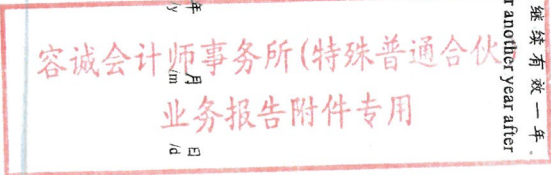 容诚会计师事务所(特殊普通合伙
业务报告附件专用
继续有效一年。
r another year after
年 月 日
/y /m /d